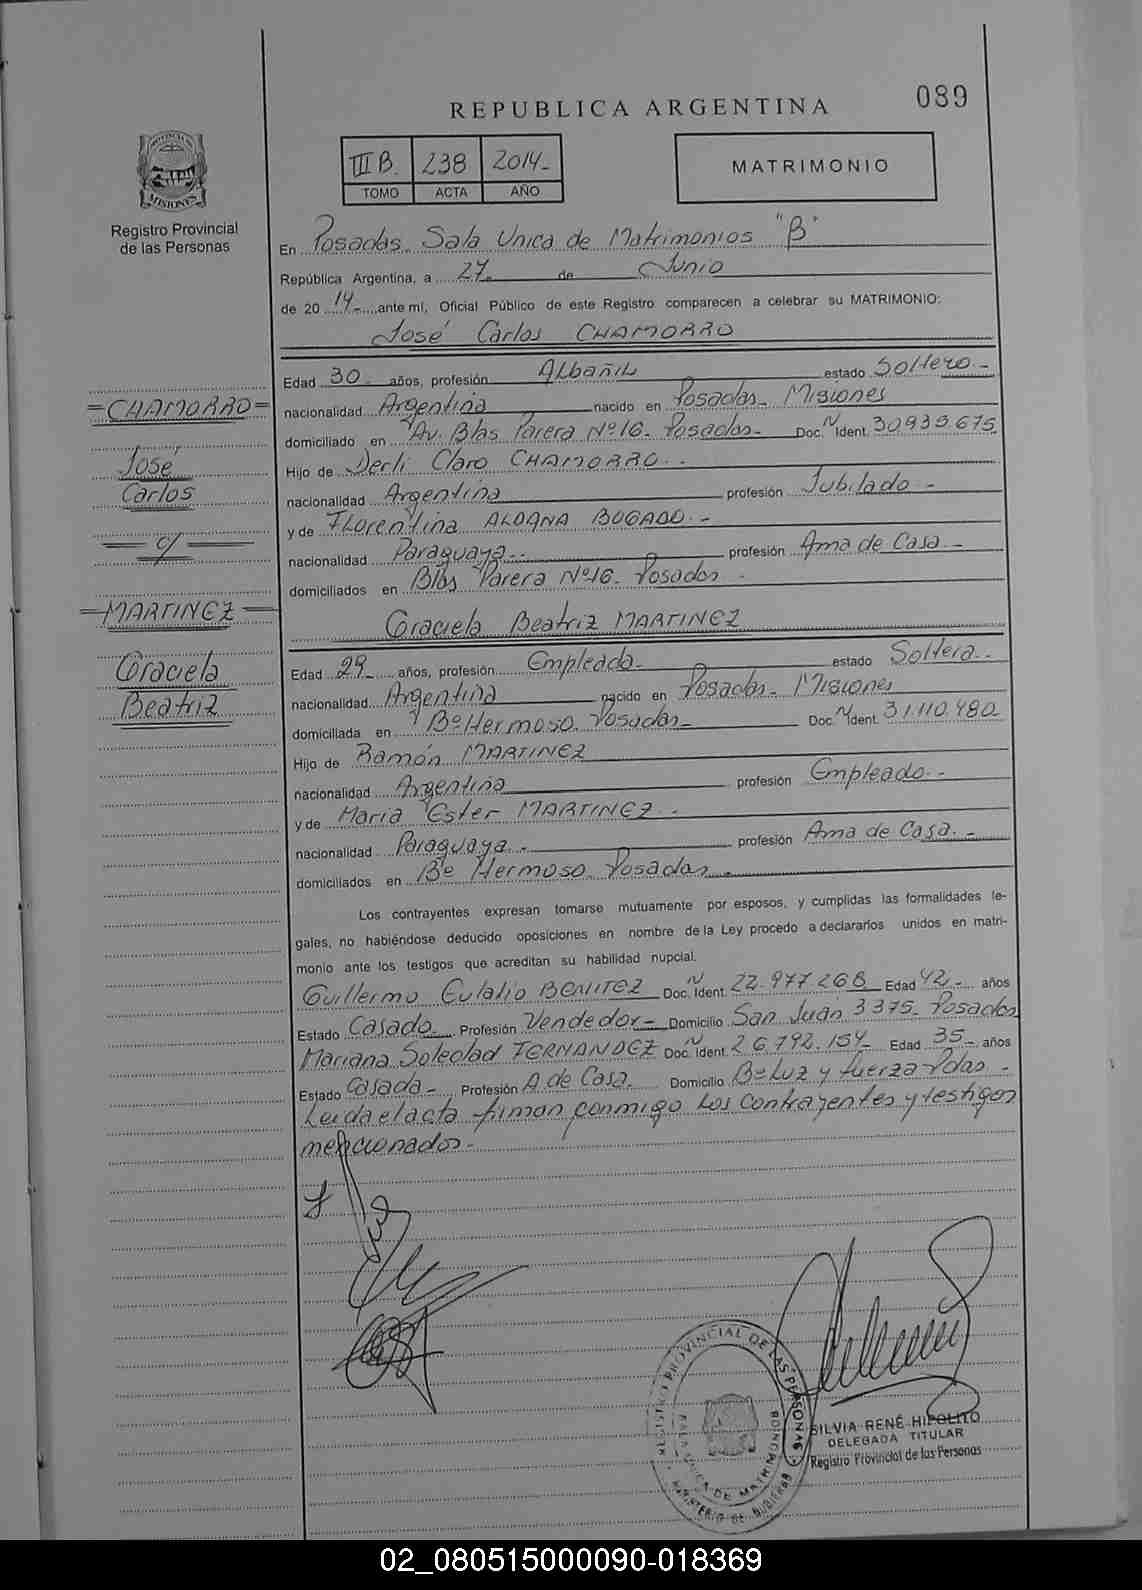 089
REPUBLICA ARGENTINA
III B. 238 2014-
TOMO ACTA AÑO
MATRIMONIO
PROVINCIA DE MISIONES
Registro Provincial
de las Personas
En Posadas. Sala Unica de Matrimonios "B"
República Argentina, a 27- de Junio
de 20 14- ante mí, Oficial Público de este Registro comparecen a celebrar su MATRIMONIO:
José Carlos CHAMORRO
Edad 30- años, profesión Albañil estado Soltero-
nacionalidad Argentina nacido en Posadas- Misiones
domiciliado en Av. Blas Parera Nº16- Posadas- Doc. N Ident. 30.935.675
Hijo de Derli Claro CHAMORRO.-
nacionalidad Argentina profesión Jubilado-
y de Florentina ALDANA BOGADO.-
nacionalidad Paraguaya-. profesión Ama de Casa-
domiciliados en Blas Parera Nº16- Posadas-
=CHAMORRO=
José
Carlos
= c/ =
=MARTINEZ=
Graciela
Beatriz
Graciela Beatriz MARTINEZ
Edad 29- años, profesión Empleada- estado Soltera-.
nacionalidad Argentina nacido en Posadas- Misiones
domiciliada en Bº Hermoso. Posadas- Doc. N Ident. 31.110.480
Hijo de Ramón MARTINEZ
nacionalidad Argentina profesión Empleado-.
y de Maria Ester MARTINEZ.-
nacionalidad Paraguaya- profesión Ama de Casa.-
domiciliados en Bº Hermoso. Posadas-
Los contrayentes expresan tomarse mutuamente por esposos, y cumplidas las formalidades le-
gales, no habiéndose deducido oposiciones en nombre de la Ley procedo a declararlos unidos en matri-
monio ante los testigos que acreditan su habilidad nupcial.
Guillermo Eulalio BENITEZ Doc. N Ident. 22.977.268 Edad 42- años
Estado Casado- Profesión Vendedor- Domicilio San Juan 3375- Posadas
Mariana Soledad FERNANDEZ Doc. N Ident. 26.792.154- Edad 35- años
Estado Casada- Profesión A de Casa. Domicilio Bº Luz y fuerza-Pdas-
Leida el acta firman conmigo los contrayentes y testigos
mencionados-
REGISTRO PROVINCIAL DE LAS PERSONAS
SALA UNICA DE MATRIMONIOS
MINISTERIO DE GOBIERNO
SILVIA RENÉ HIPOLITO
DELEGADA TITULAR
Registro Provincial de las Personas
02_080515000090-018369